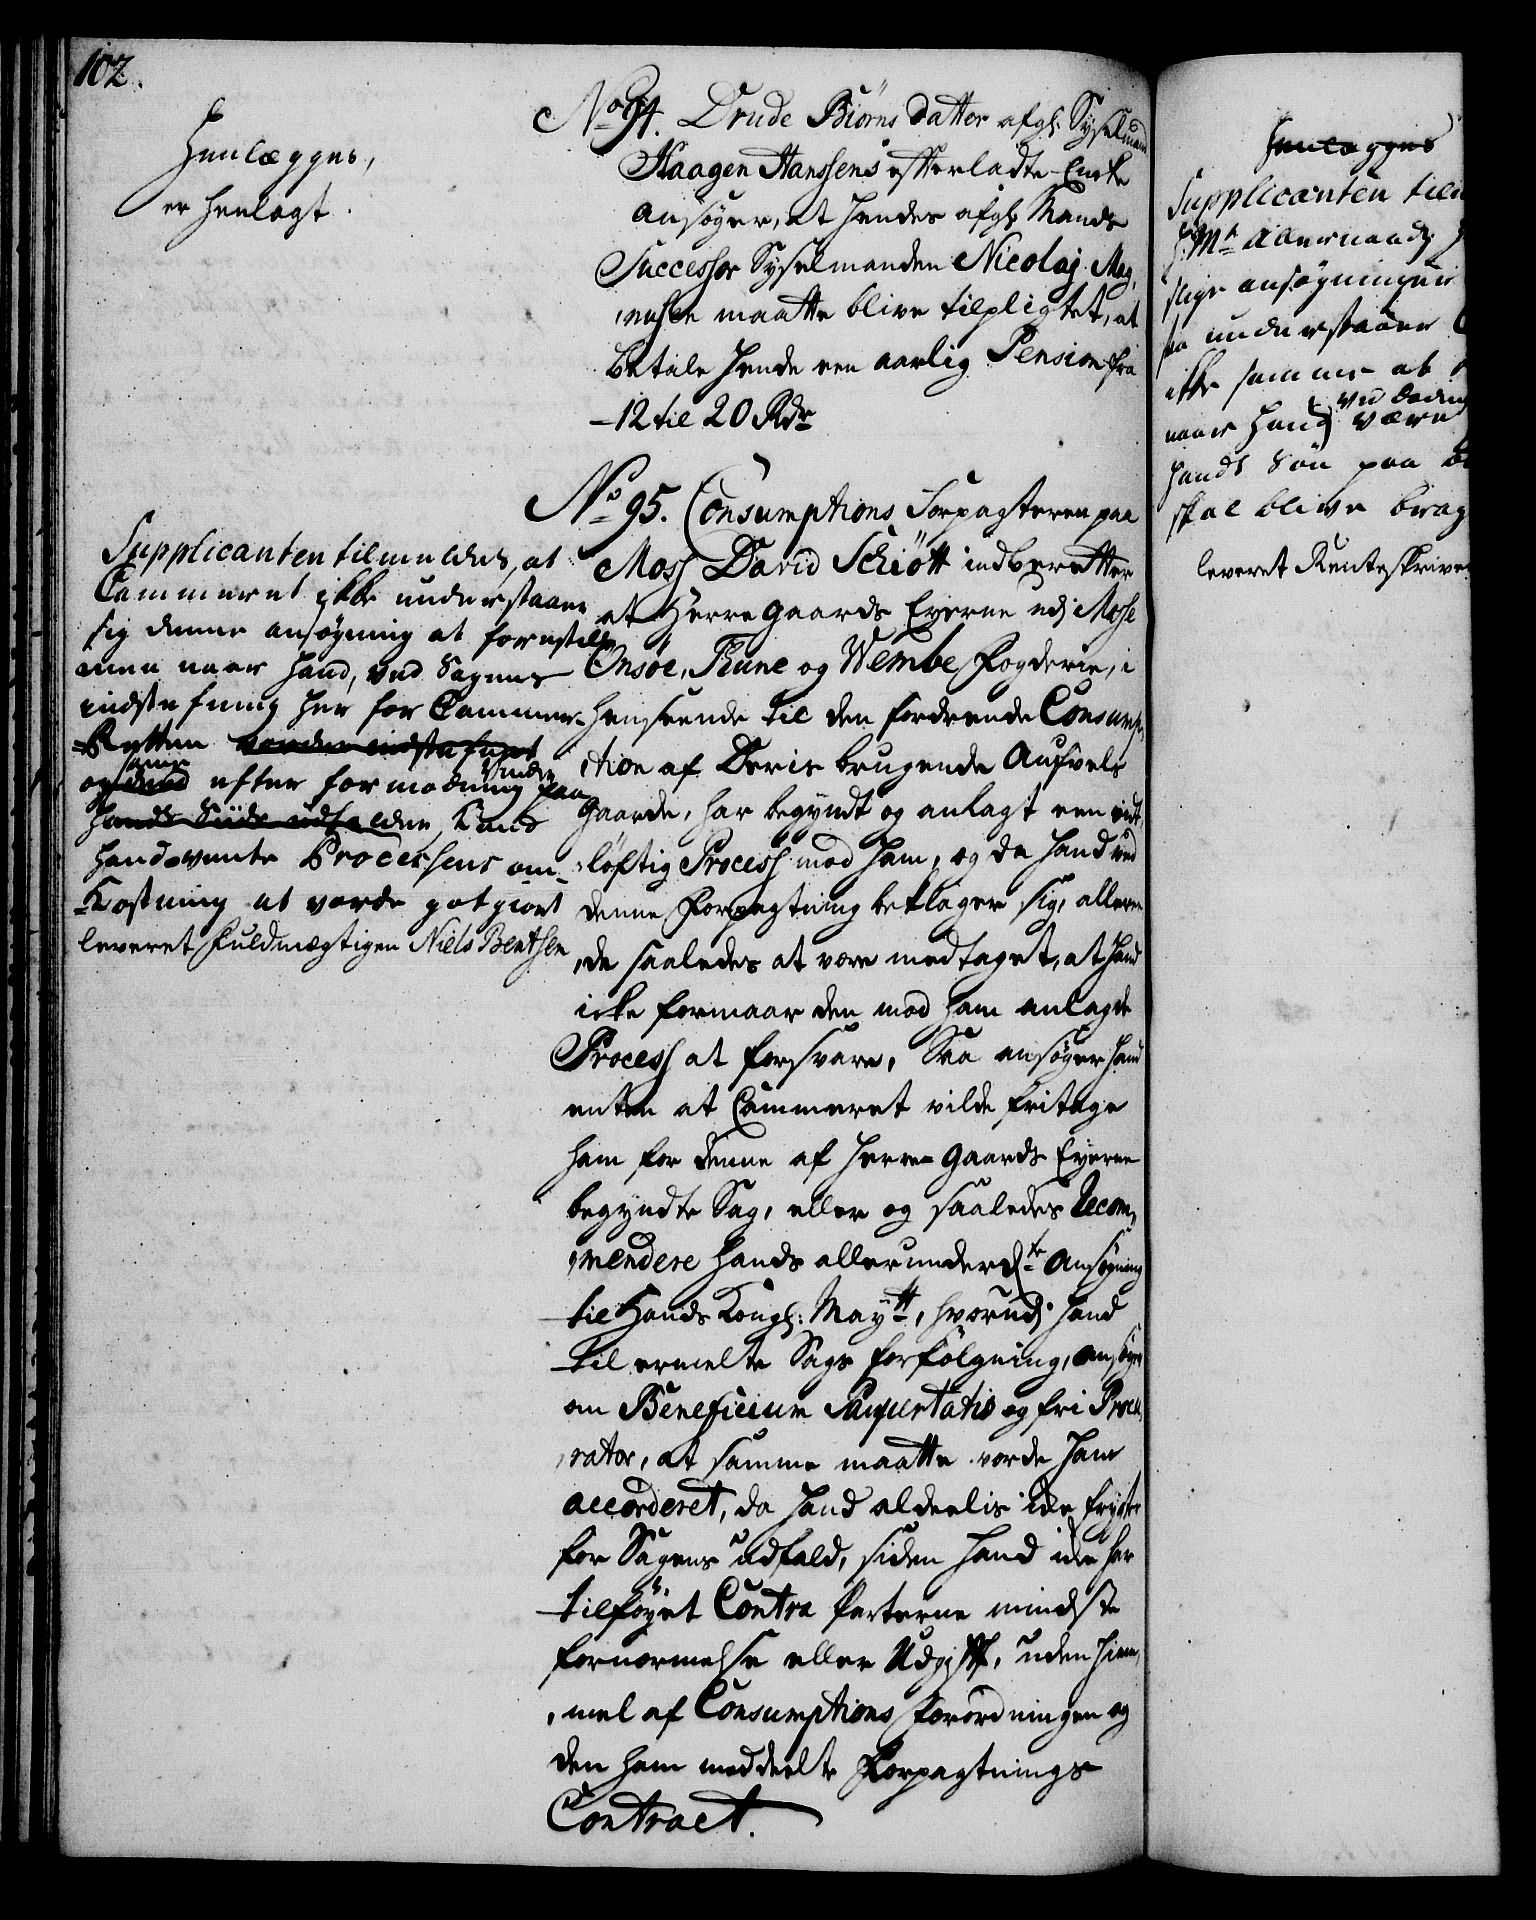 102.
Henlægges,
er henlagt.
No 94. Drude Biörns datter afgl: Sysselmand
Haagen Hanssens efterladte Enke
ansøger, at hendes afgl: Mands
Successor Sysselmanden Nicolaj Mag,
,nusen maatte blive tilpligtet, at
betale hende een aarlig Pension fra
12 til 20 Rdr
No 95. Consumptions Forpagteren paa
Moss David Schiött indberetter
at Herregaards Eyerne udj Mosse
Onsøe, Tune og Wembe fogderie, i
henseende til den fordrende Consump,
,tion af Deris brugende Aufvels
gaarde, har begyndt og anlagt een vidt
,løftig Process mod ham, og da hand ved
denne Forpagtning beklager sig, allere
,de saaledes at være medtaget, at hand
icke formaar den mod ham anlagde
Process at forsvare, Saa ansøger hand
enten at Cammeret vilde fritage
ham for denne af Herre Gaards Eyerne
begyndte Sag, eller og saaledes Recom,
,mendere hands allerunderd:te Ansøgning
til Hands Kongl: Mayt:, hvorudj hand
til ermelte Sags forfølgning, ansøger
om Beneficium Paupertatis og fri Procu,
,rator, at samme maatte vorde ham
accorderet, da hand aldeelis icke frygter
for Sagens udfald, siden hand icke har
tilføyet Contra Parterne mindste
fornærmelse eller Udgift, uden hiem,
,mel af Consumptions Forordningen og
den ham meddeelte Forpagtnings
Contract.
Supplicanten tilmeldes, at
Cammeret ikke understaaer
sig denne ansøgning at forestille
men naar hand, ved Sagens
indstefning her for Cammer-
Retten vorder indstefnet
og samme efter formodning vinder paa
hands Siide udfalder, kand
hand vente Processens om-
kostning at vorde gotgiort
leveret fuldmægtigen Niels Bentsen
Henlægges
Supplicanten
slige ansøgninger
understaaer
ikke samme at
naar hand ved
være
hands Søn paa
skal blive
leveret Renteskriver